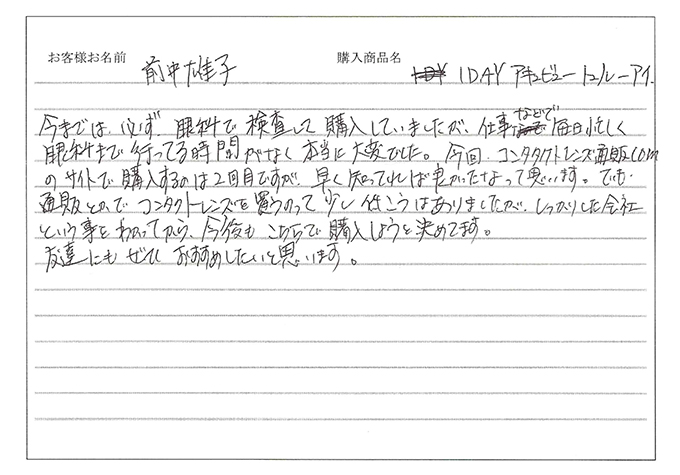 お客様お名前 前中雄子 購入商品名 1DAY アキュビュー トゥルーアイ.
今までは、必ず、眼科で検査して購入していましたが、仕事などで毎日忙しく
眼科まで行ってる時間がなく本当に大変でした。今回、コンタクトレンズ通販.com
のサイトで購入するのは2回目ですが、早く知ってれば良かったなって思います。でも、
通販とかでコンタクトレンズを買うのって少し抵こうはありましたが、しっかりした会社
という事もわかってから、今後もこちらで購入しようと決めてます。
友達にもぜひおすすめしたいと思います。